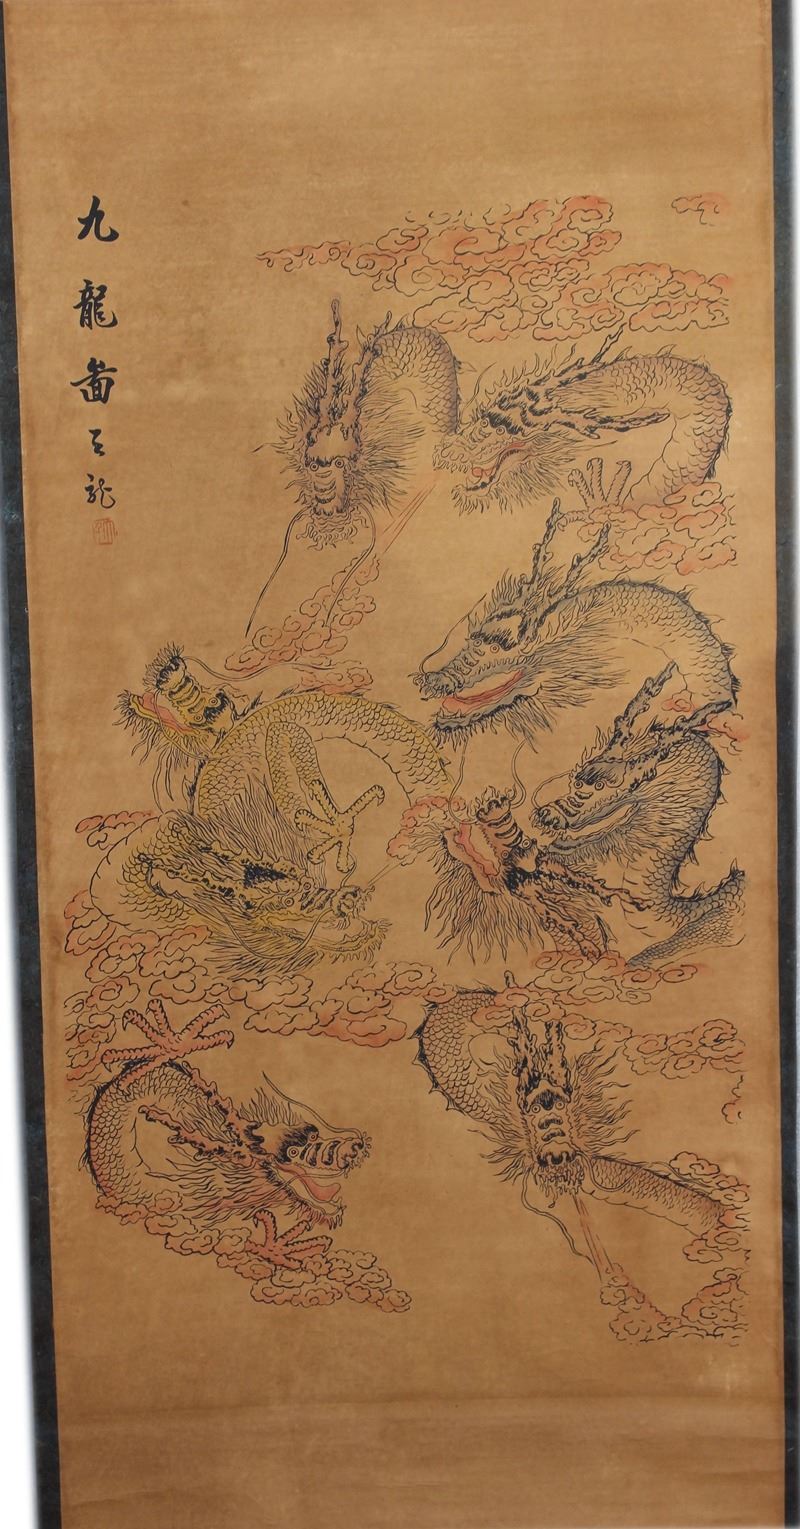 九龍啚王龍